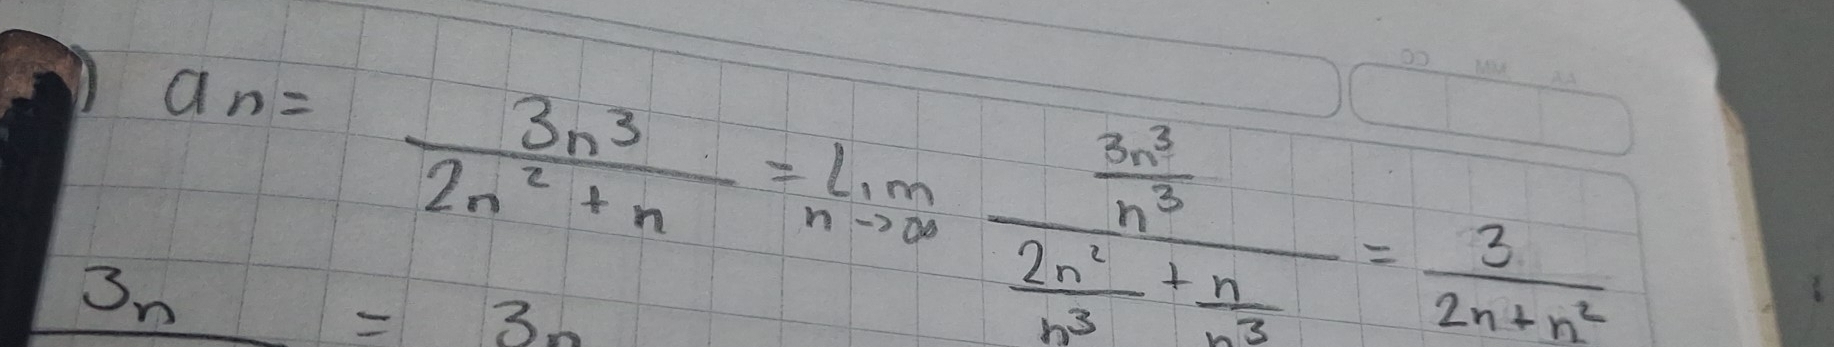 DD MM AA
) an = 3n³ / (2n² + n) = Lim n→∞ (3n³/n³) / (2n²/n³ + n/n³) = 3 / (2n + n²)
3n = 3n